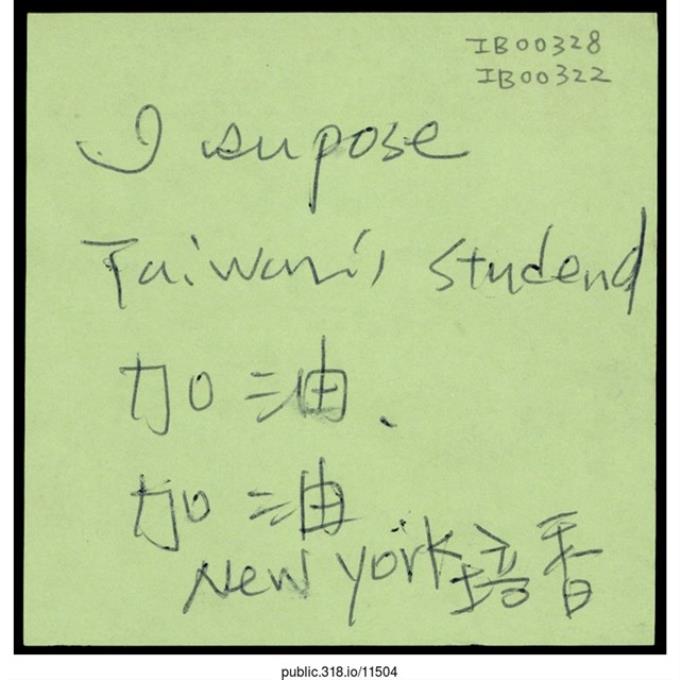 IB00328
IB00322
I supose
Taiwan's studend
加油、
加油
New york 培香
public.318.io/11504